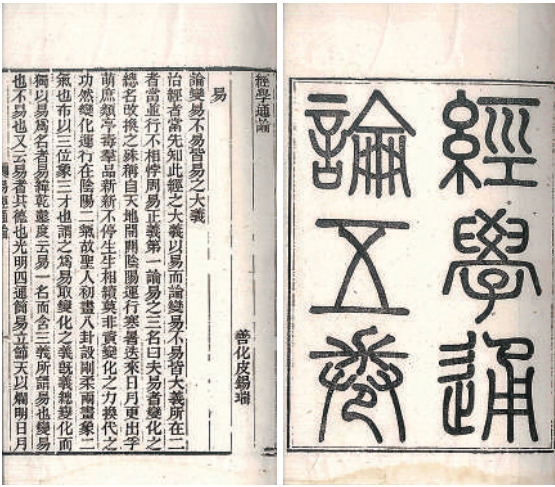 經學通
論五卷
經學通論
善化皮錫瑞
易
論變易不易皆易之大義
治經者當先知此經之大義以易而論變易不易皆大義所在二
者當並行不相悖周易正義第一論易之三名曰夫易者變化之
總名改換之殊稱自天地開闢陰陽運行寒暑迭來日月更出孚
萌庶類亭毒羣品新新不停生生相續莫非資變化之力換代之
功然變化運行在陰陽二氣故聖人初畫八卦設剛柔兩畫象二
氣也布以三位象三才也謂之爲易取變化之義旣義總變化而
獨以易爲名者易緯乾鑿度云易一名而含三義所謂易也變易
也不易也又云易者其德也光明四通簡易立節天以爛明日月